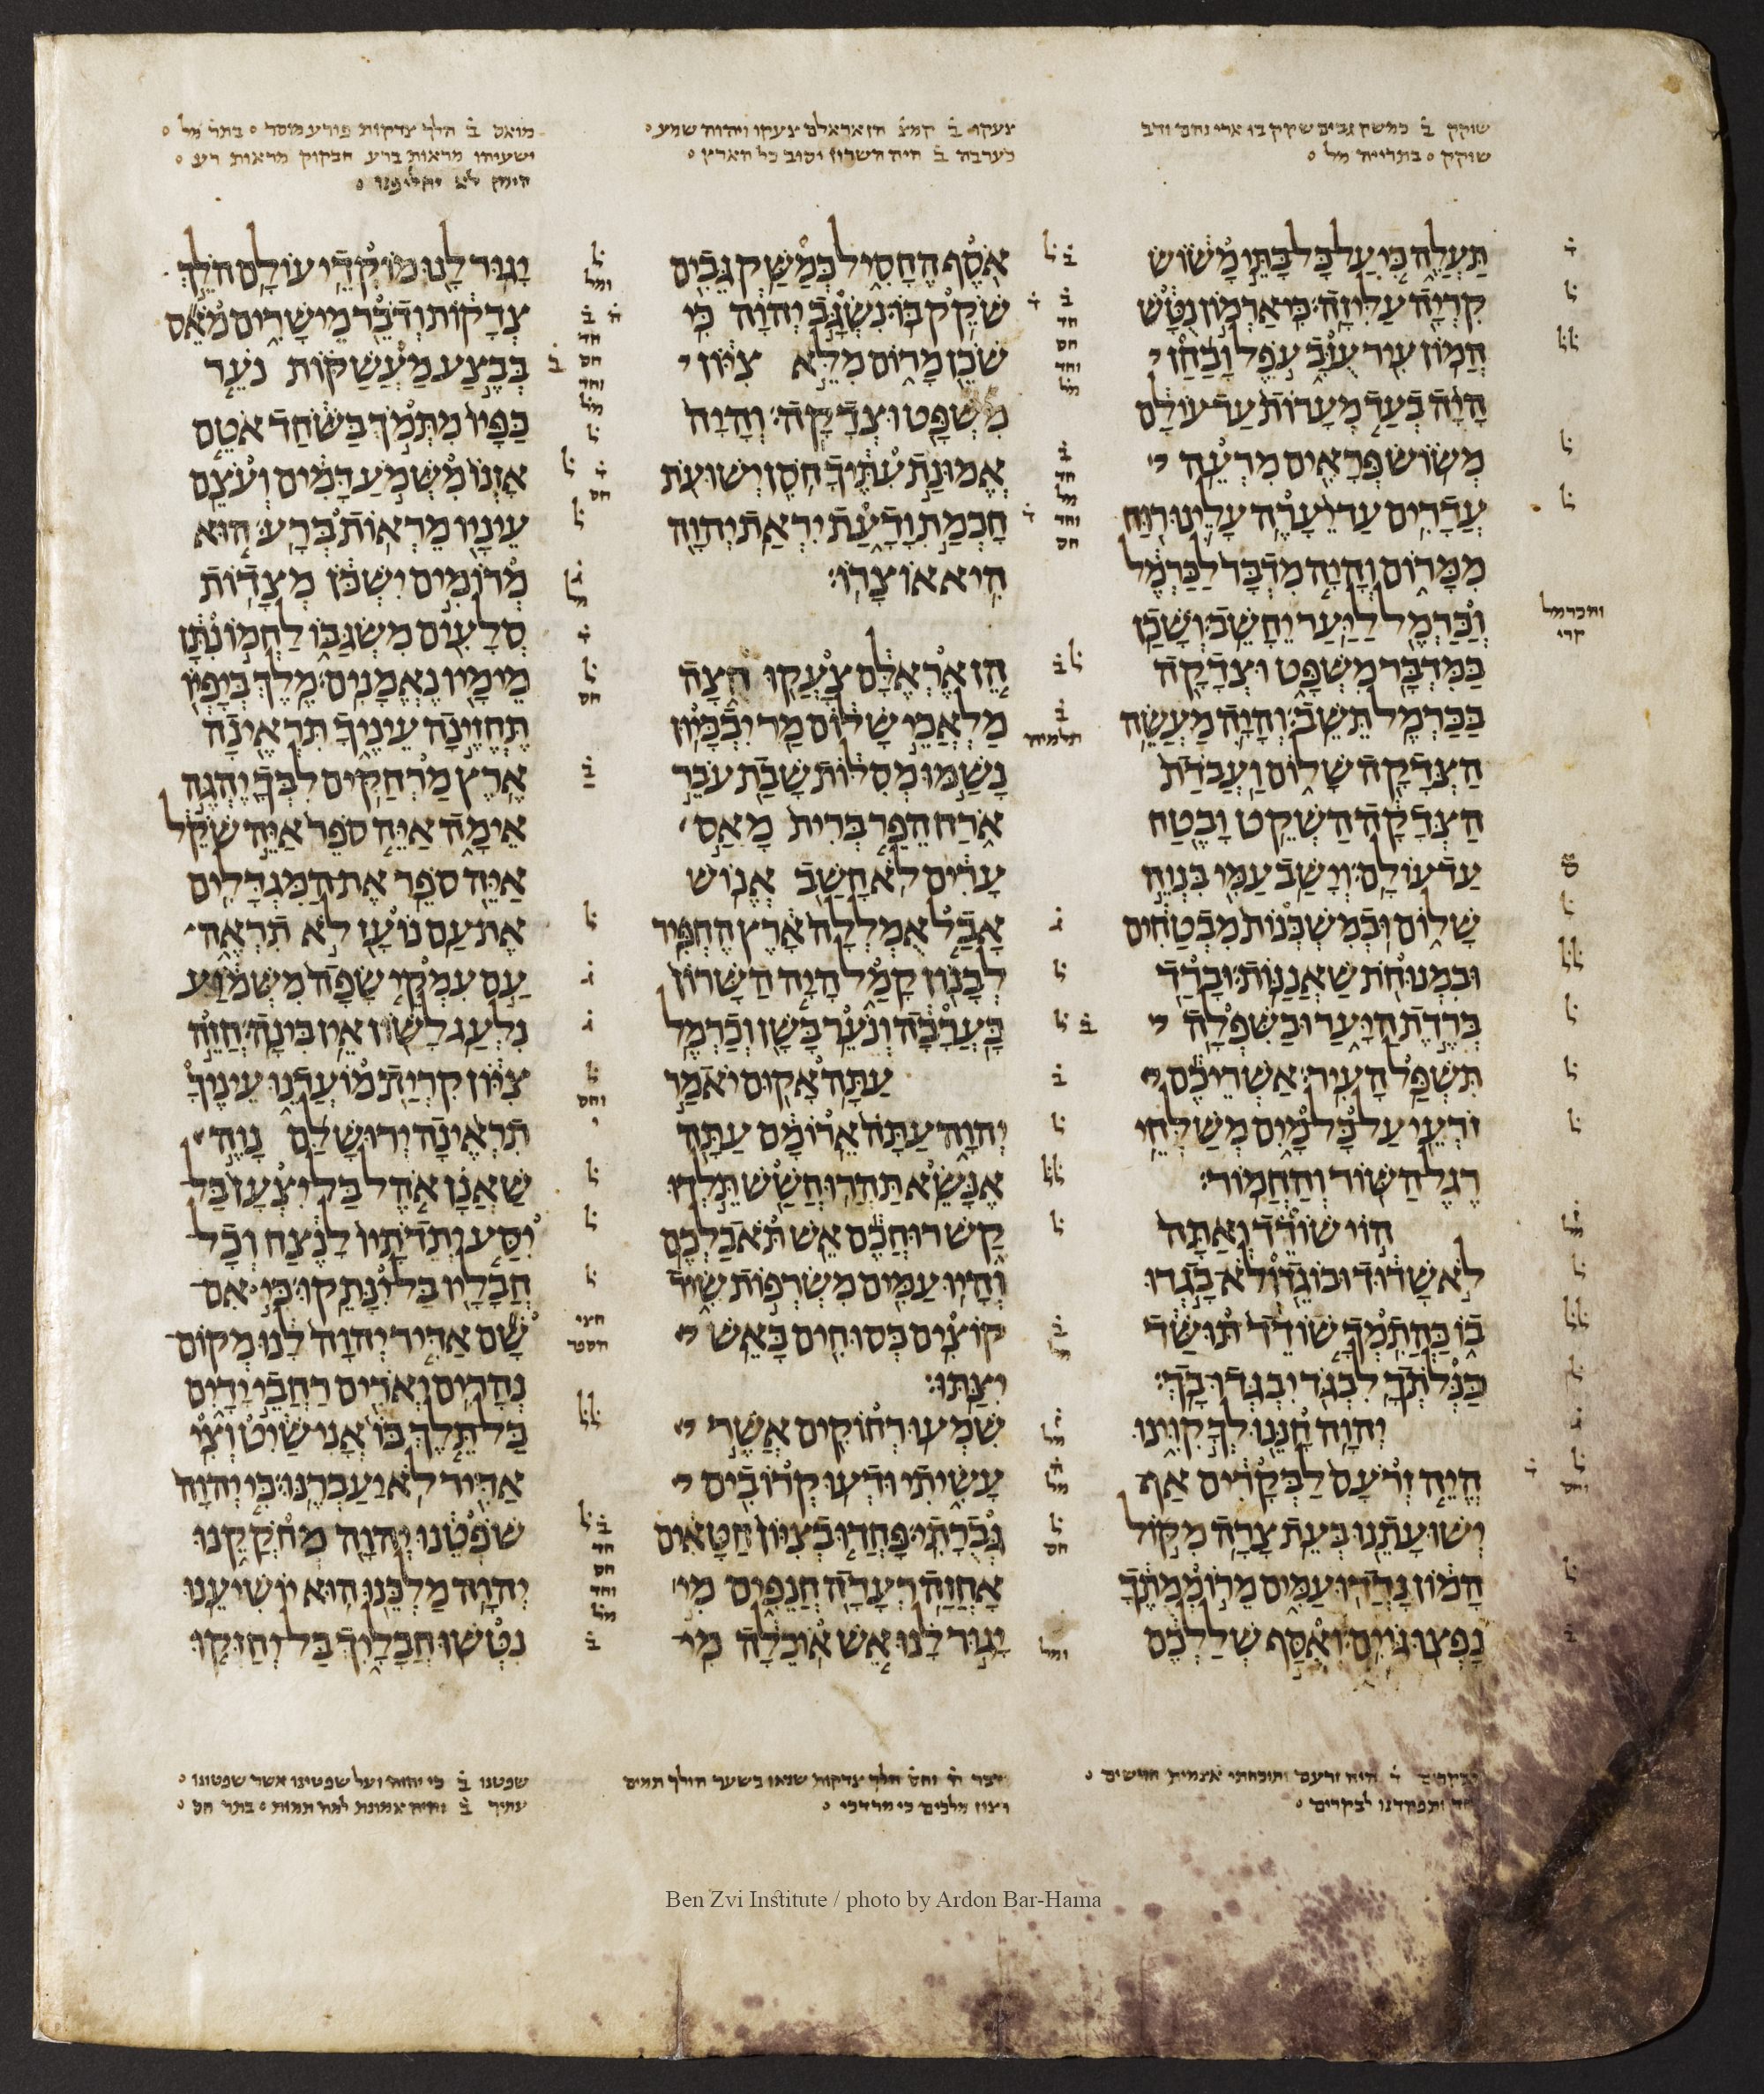 שוקק ב כמשק גבים שקק בו ארי נהם ודב
שוקק ֯ בתרייה מל ֯
צעקו ב קמצ הן אראלם צעקו ויהוה שמע ֯
כערבה ב היה השרון יסוב כל הארץ ֯
מואס ב הלך צדקות פורע מוסר ֯ בתר מל ֯
ישעיהו מראות ברע חבקוק מראות רע ֯
תעלה כי על כל בתי משוש
קריה עליזה׃ כי ארמון נטש
המון עיר עזב עפל ובחן
היה בעד מערות עד עולם
משוש פראים מרעה
עדרים׃ עד יערה עלינו רוח
ממרום והיה מדבר לכרמל
וכרמל ליער יחשב׃ ושכן
במדבר משפט וצדקה
בכרמל תשב׃ והיה מעשה
הצדקה שלום ועבדת
הצדקה השקט ובטח
עד עולם׃ וישב עמי בנוה
שלום ובמשכנות מבטחים
ובמנוחת שאננות׃ וברד
ברדת היער ובשפלה
תשפל העיר׃ אשריכם
זרעי על כל מים משלחי
רגל השור והחמור׃
הוי שודד ואתה
לא שדוד ובוגד ולא בגדו
בו כהתמך שודד תושד
כנלתך לבגד יבגדו בך׃
יהוה חננו לך קוינו
היה זרעם לבקרים אף
ישועתנו בעת צרה׃ מקול
המון נדדו עמים מרוממתך
נפצו גוים׃ ואסף שללכם
אסף החסיל כמשק גבים
שקק בו׃ נשגב יהוה כי
שכן מרום מלא ציון
משפט וצדקה׃ והיה
אמונת עתיך חסן ישועת
חכמת ודעת יראת יהוה
היא אוצרו׃
הן אראלם צעקו חצה
מלאכי שלום מר יבכיון׃
נשמו מסלות שבת עבר
ארח הפר ברית מאס
ערים לא חשב אנוש׃
אבל אמללה ארץ החפיר
לבנון קמל היה השרון
כערבה ונער בשן וכרמל׃
עתה אקום יאמר
יהוה עתה ארומם עתה
אנשא׃ תהרו חשש תלדו
קש רוחכם אש תאכלכם׃
והיו עמים משרפות שיד
קוצים כסוחים באש
יצתו׃
שמעו רחוקים אשר
עשיתי ודעו קרובים
גברתי׃ פחדו בציון חטאים
אחזה רעדה חנפים מי
יגור לנו אש אוכלה מי
יגור לנו מוקדי עולם׃ הלך
צדקות ודבר מישרים מאס
בבצע מעשקות נער
כפיו מתמך בשחד אטם
אזנו משמע דמים ועצם
עיניו מראות ברע׃ הוא
מרומים ישכן מצדות
סלעים משגבו לחמו נתן
מימיו נאמנים׃ מלך ביפיו
תחזינה עיניך תראינה
ארץ מרחקים׃ לבך יהגה
אימה איה ספר איה שקל
איה ספר את המגדלים׃
את עם נועז לא תראה
עם עמקי שפה משמוע
נלעג לשון אין בינה׃ חזה
ציון קרית מועדנו עיניך
תראינה ירושלם נוה
שאנן אהל בל יצען בל
יסע יתדתיו לנצח וכל
חבליו בל ינתקו׃ כי אם
שם אדיר יהוה לנו מקום
נהרים יארים רחבי ידים
בל תלך בו אני שיט וצי
אדיר לא יעברנו׃ כי יהוה
שפטנו יהוה מחקקנו
יהוה מלכנו הוא יושיענו׃
נטשו חבליך בל יחזקו
היה זרעם ותוכחתי
ותפקדנו לבקרים ֯
ודבר וחס הלך צדקות שנאו בשער הולך תמים
רצון מלכים כי מרדכי ֯
שפטנו ב כי יהוה ועל שפטינו אשר שפטונו ֯
עתיך ב והיה אמונת למה תמות ֯ בתר חס ֯
Ben Zvi Institute / photo by Ardon Bar-Hama